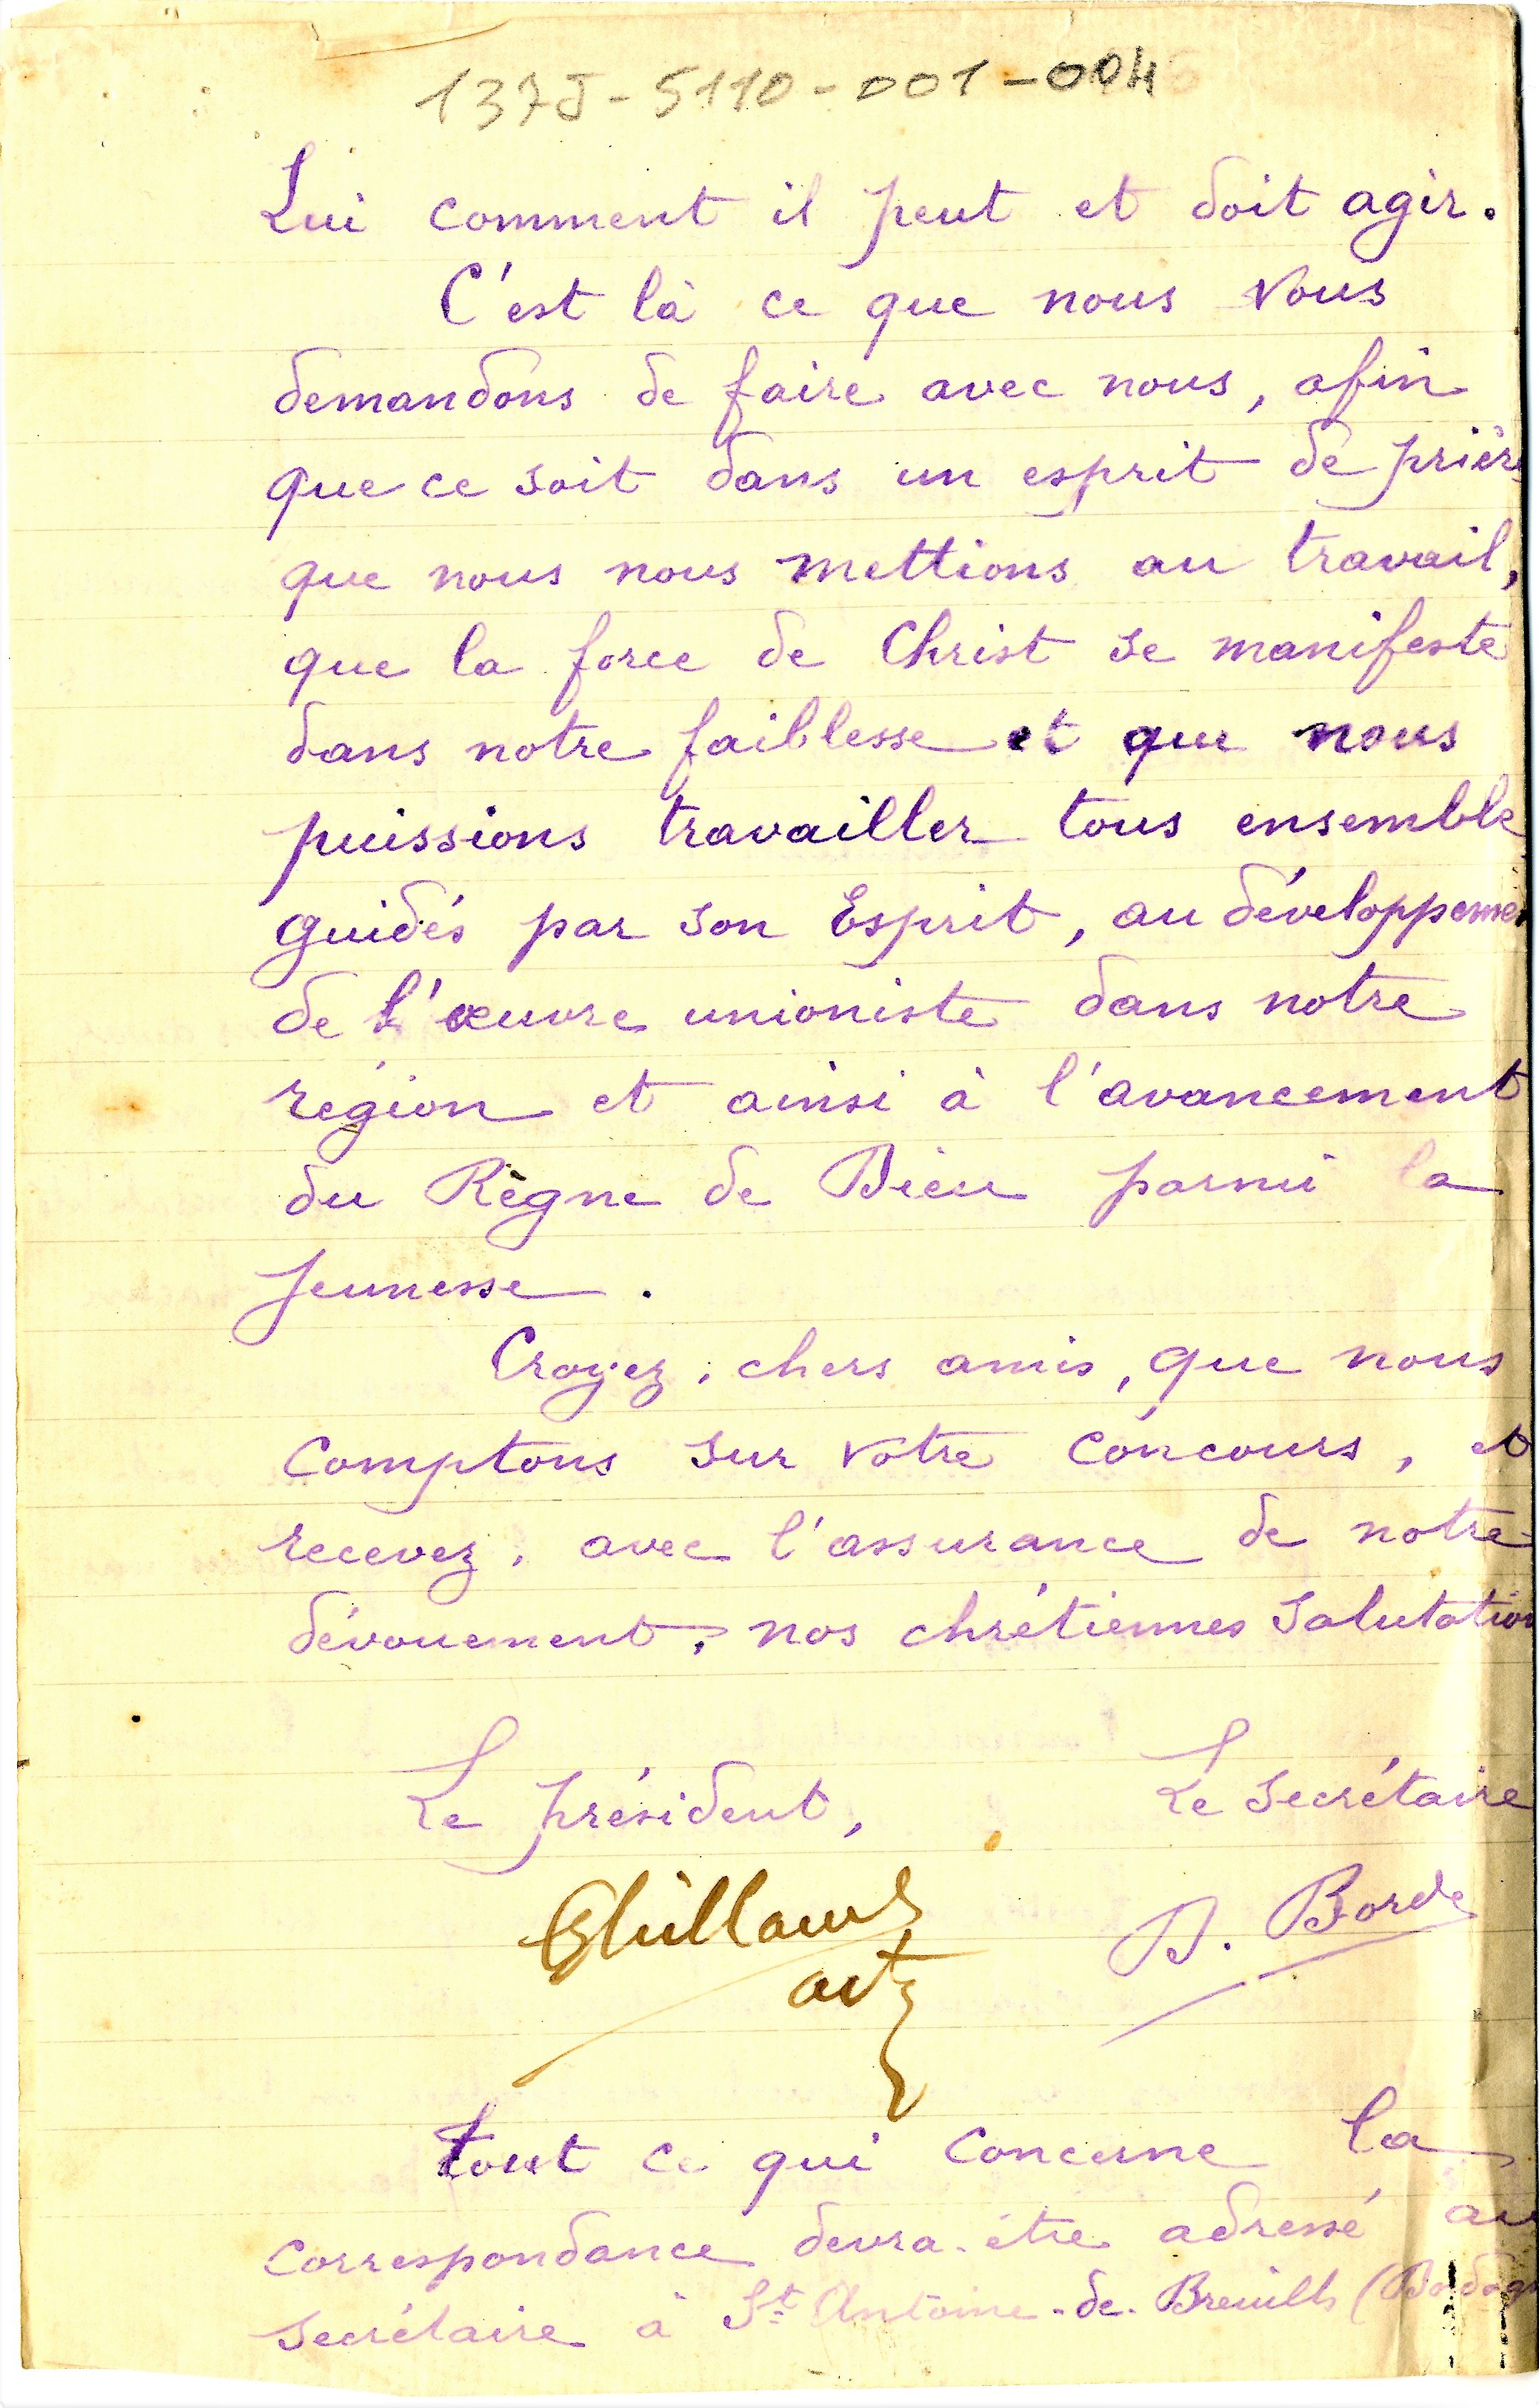 137J-5110-001-004
Lui comment il peut et doit agir.
C'est là ce que nous vous
demandons de faire avec nous, afin
que ce soit dans un esprit de prière
que nous nous mettions au travail,
que la force de Christ se manifeste
dans notre faiblesse et que nous
puissions travailler tous ensemble
guidés par son Esprit, au développemen
de l'œuvre unioniste dans notre
région et ainsi à l'avancement
du Règne de Dieu parmi la
jeunesse.
Croyez, chers amis, que nous
comptons sur votre concours, et
recevez, avec l'assurance de notre
dévouement, nos chrétiennes salutation
Le président,
Le secrétaire
D. Borde
Tout ce qui concerne la
correspondance devra être adressé au
secrétaire à St Antoine-de-Breuilh (Dordog